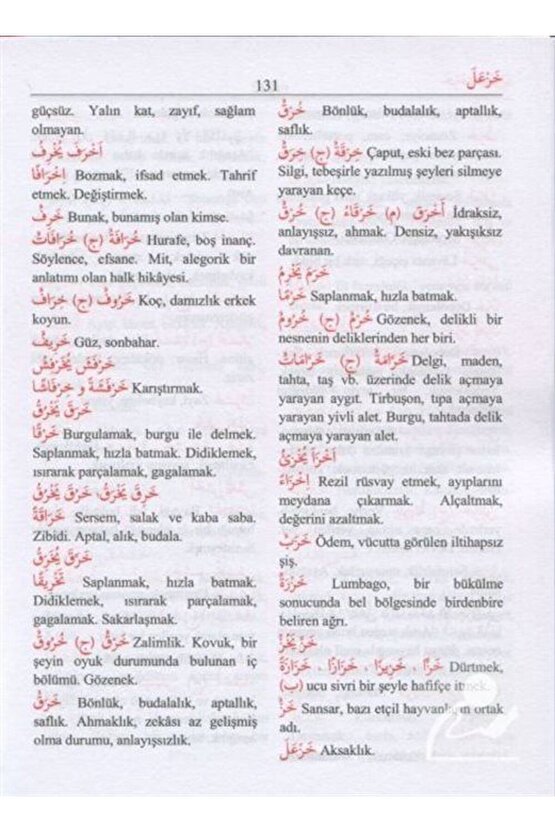 131
خَزْعَلَ
güçsüz. Yalın kat, zayıf, sağlam
olmayan.
أَخْرَفَ يُخْرِفُ
إِخْرَافًا Bozmak, ifsad etmek. Tahrif
etmek. Değiştirmek.
خَرِفٌ Bunak, bunamış olan kimse.
خُرَافَةٌ (ج) خُرَافَاتٌ Hurafe, boş inanç.
Söylence, efsane. Mit, alegorik bir
anlatımı olan halk hikâyesi.
خَرُوفٌ (ج) خِرَافٌ Koç, damızlık erkek
koyun.
خَرِيفٌ Güz, sonbahar.
خَرْفَشَ يُخَرْفِشُ
خَرْفَشَةً و خِرْفَاشًا Karıştırmak.
خَرَقَ يَخْرُقُ
خَرْقًا Burgulamak, burgu ile delmek.
Saplanmak, hızla batmak. Didiklemek,
ısırarak parçalamak, gagalamak.
خَرِقَ يَخْرَقُ، خَرُقَ يَخْرُقُ
خَرَاقَةً Sersem, salak ve kaba saba.
Zibidi. Aptal, alık, budala.
خَرَّقَ يُخَرِّقُ
تَخْرِيقًا Saplanmak, hızla batmak.
Didiklemek, ısırarak parçalamak,
gagalamak. Sakarlaşmak.
خَرْقٌ (ج) خُرُوقٌ Zalimlik. Kovuk, bir
şeyin oyuk durumunda bulunan iç
bölümü. Gözenek.
خَرَقٌ Bönlük, budalalık, aptallık,
saflık. Ahmaklık, zekâsı az gelişmiş
olma durumu, anlayışsızlık.
خُرْقٌ Bönlük, budalalık, aptallık,
saflık.
خِرْقَةٌ (ج) خِرَقٌ Çaput, eski bez parçası.
Silgi, tebeşirle yazılmış şeyleri silmeye
yarayan keçe.
أَخْرَقُ (م) خَرْقَاءُ (ج) خُرْقٌ İdraksiz,
anlayışsız, ahmak. Densiz, yakışıksız
davranan.
خَرَمَ يَخْرِمُ
خَرْمًا Saplanmak, hızla batmak.
خَرْمٌ (ج) خُرُومٌ Gözenek, delikli bir
nesnenin deliklerinden her biri.
خَرَّامَةٌ (ج) خَرَّامَاتٌ Delgi, maden,
tahta, taş vb. üzerinde delik açmaya
yarayan aygıt. Tirbuşon, tıpa açmaya
yarayan yivli alet. Burgu, tahtada delik
açmaya yarayan alet.
أَخْزَأَ يُخْزِئُ
إِخْزَاءً Rezil rüsvay etmek, ayıplarını
meydana çıkarmak. Alçaltmak,
değerini azaltmak.
خَزَبٌ Ödem, vücutta görülen iltihapsız
şiş.
خَزْرَةٌ Lumbago, bir bükülme
sonucunda bel bölgesinde birdenbire
beliren ağrı.
خَزَّ يَخُزُّ
خَزًّا ، خَزِيزًا ، خَزَازًا ، خَزَازَةً Dürtmek,
(ب) ucu sivri bir şeyle hafifçe itmek.
خَزٌّ Sansar, bazı etçil hayvanların ortak
adı.
خَزْعَلَ Aksaklık.